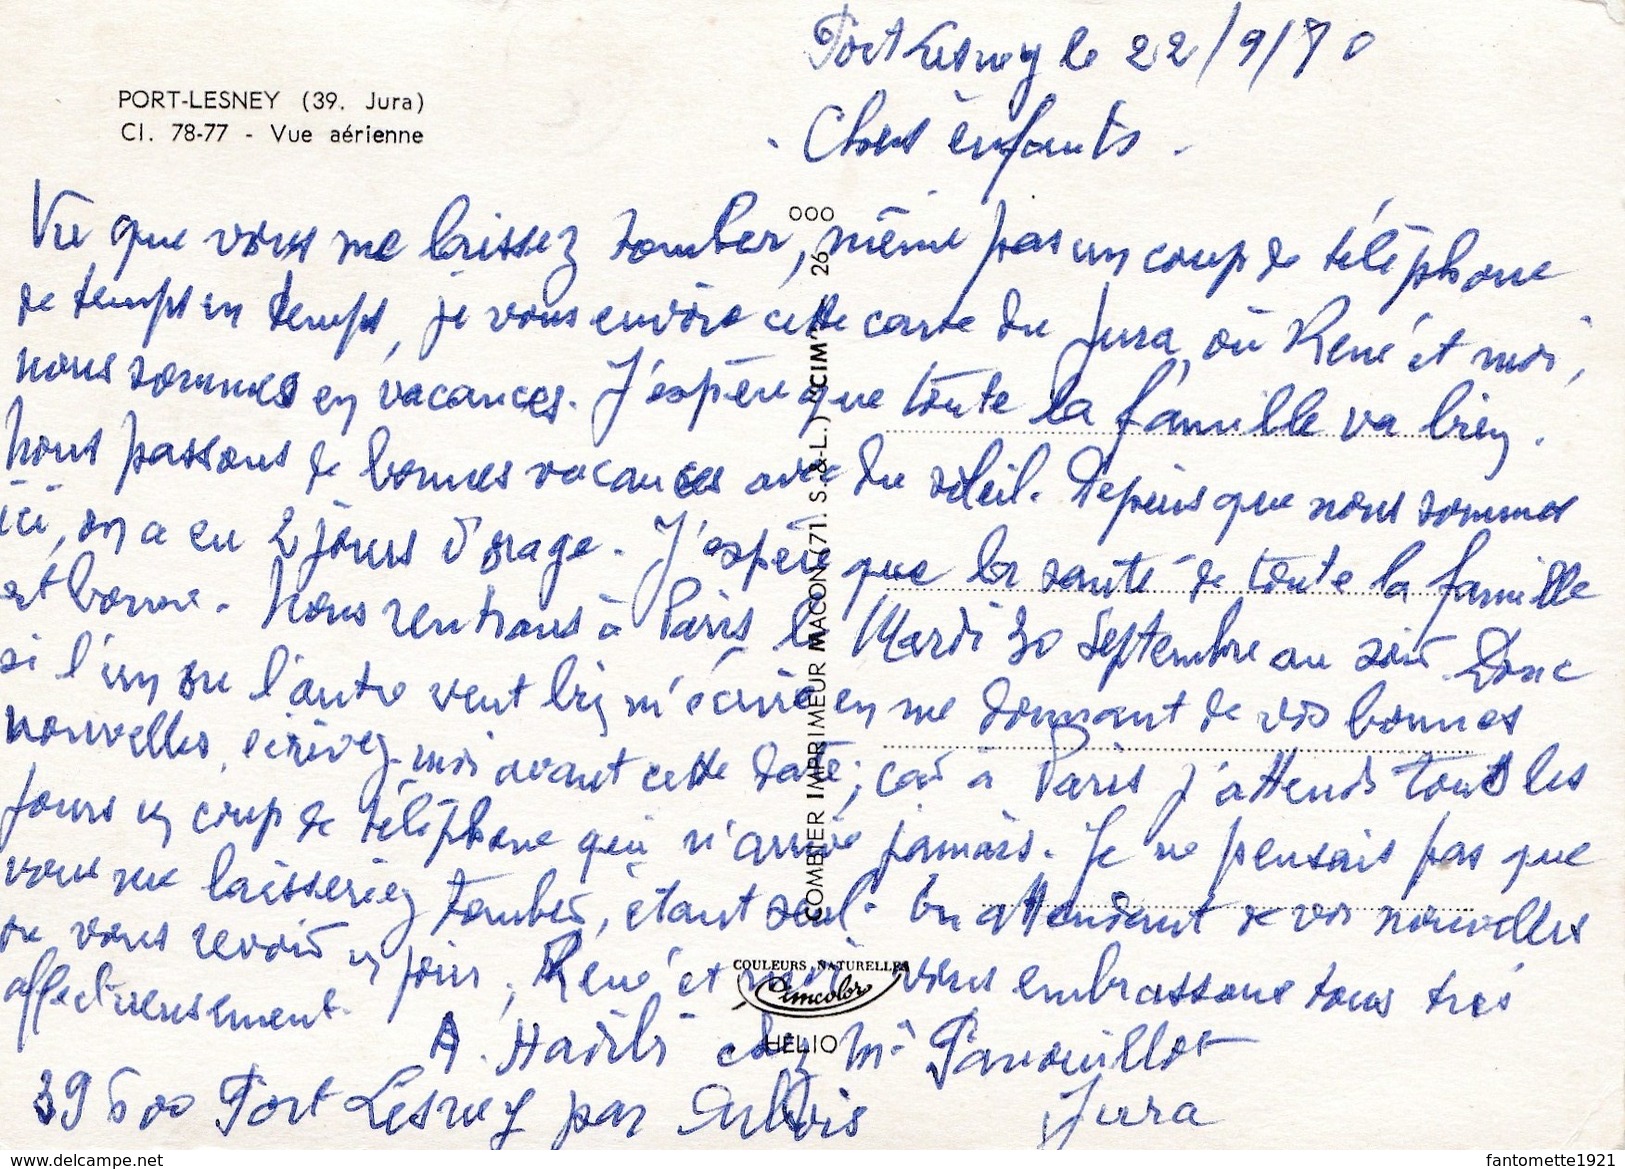 Port Lesney le 22/9/70
PORT-LESNEY (39. Jura)
Cl. 78-77 - Vue aérienne
Chers enfants.
Vu que vous me laissez tomber, même pas un coup de téléphone
de temps en temps, je vous envoie cette carte du Jura, où René et moi,
nous sommes en vacances. J'espère que toute la famille va bien.
Nous passons de bonnes vacances avec du soleil. Depuis que nous sommes
ici, on a eu 2 jours d'orage. J'espère que la santé de toute la famille
est bonne. Nous rentrons à Paris le Mardi 30 Septembre au soir. Donc
si l'un ou l'autre veut bien m'écrire en me donnant de vos bonnes
nouvelles, écrivez-moi avant cette date; car à Paris j'attends tous les
jours un coup de téléphone qui n'arrive jamais. Je ne pensais pas que
vous me laisseriez tomber, étant seul. En attendant de vos nouvelles
ou vous revoir un jour, René et moi vous embrassons tous très
affectueusement.
A. chez Mr Panouillot
39600 Port Lesney par Arbois Jura
COMBIER IMPRIMEUR MACON (71. S.-&-L.) "CIM"
26
000
COULEURS NATURELLES
Cimcolor
HÉLIO
www.delcampe.net
fantomette1921